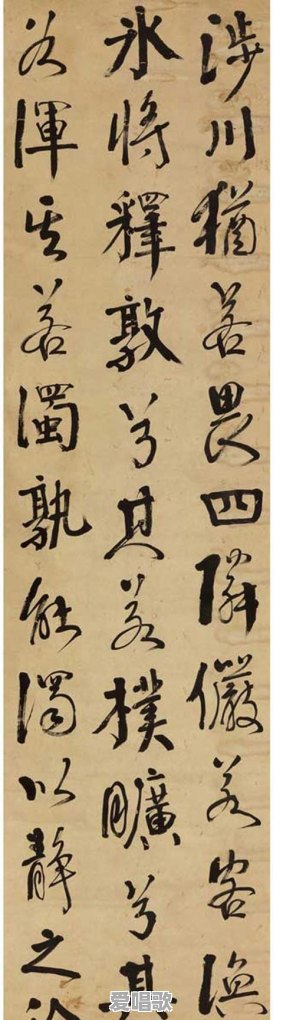 涉川猶若畏四隣儼若客渙
氷將釋敦兮其若樸曠兮其
谷渾其若濁孰能濁以靜之
爱唱歌